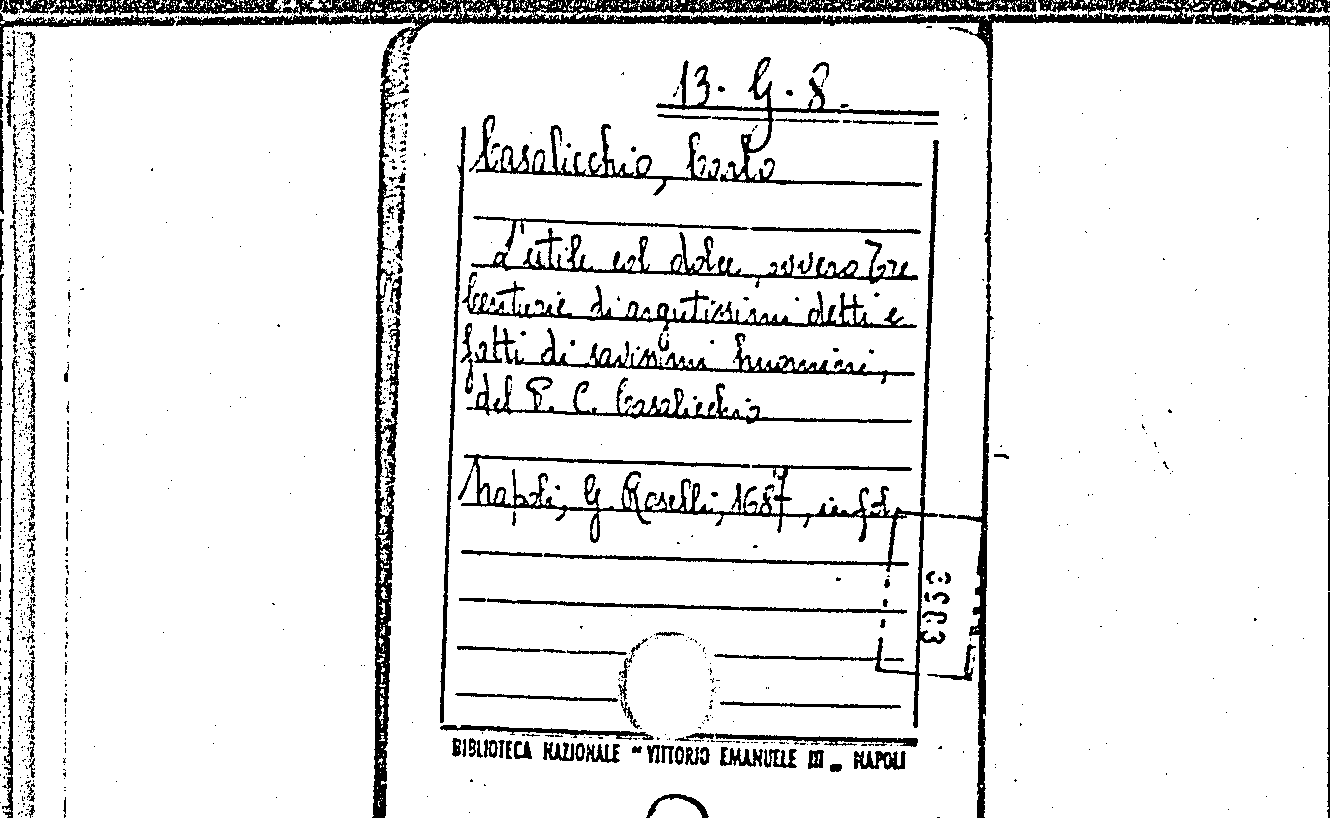 13. G. 8.
Casalicchio, Carlo
L'utile col dolce, ovvero Tre
Centurie di argutissimi detti e
fatti di savissimi huomini,
del P. C. Casalicchio
Napoli, G. Roselli, 1687, in fol.
BIBLIOTECA NAZIONALE "VITTORIO EMANUELE III _ NAPOLI